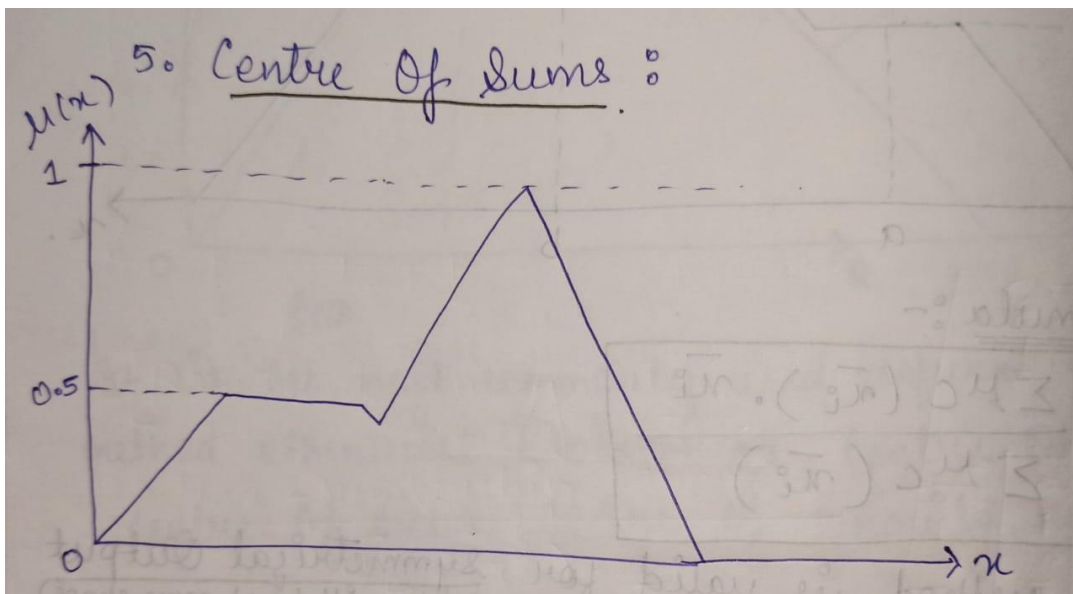 5. Centre Of Sums :
μ(x)
1
0.5
0
x